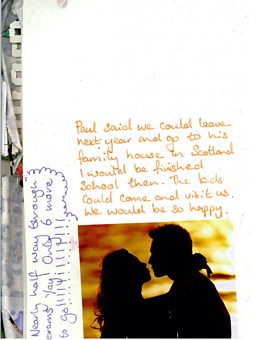 Paul said we could leave
next year and go to his
family house in Scotland
I would be finished
School then. The lads
could come and visit us.
We would be so happy.
Nearly half way through
exams Yay! Only 6 more
to go!!!!!!!!!!!!!!